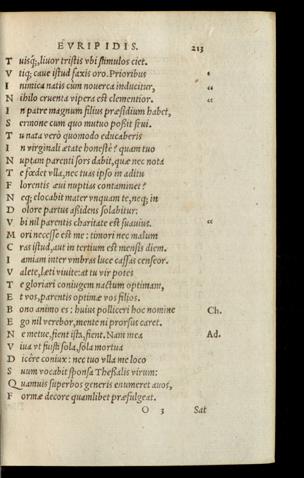 EVRIPIDIS. 213
T uisq;, liuor tristis vbi stimulos ciet.
V tiq; caue istud faxis oro. Prioribus
I nimica natis cùm nouerca inducitur,
N ihilo cruenta vipera est clementior.
I n patre magnum filius præsidium habet,
S ermone cum quo mutuo poßit frui.
T u nata verò quomodo educaberis
I n virginali ætate honestè? quam tuo
N uptam parenti sors dabit, quæ nec nota
T e fœdet vlla, nec tuas ipso in aditu
F lorentis æui nuptias contaminet?
N eq; elocabit mater vnquam te, neq; in
D olore partus aßidens solabitur:
V bi nil parentis charitate est suauius.
M ori necesse est me: timori nec malum
C ras istud, aut in tertium est mensis diem.
I amiam inter vmbras luce cassas censeor.
V alete, læti viuite: at tu vir potes
T e gloriari coniugem nactum optimam,
E t vos, parentis optimæ vos filios.
B ono animo es: huius polliceri hoc nomine Ch.
E go nil verebor, mente ni prorsus caret.
N e metue, fient ista, fient. Nam mea Ad.
V iua vt fuisti sola, sola mortua
D icêre coniux: nec tuo vlla me loco
S uum vocabit sponsa Thessalis virum:
Q uamuis superbos generis enumeret auos,
F ormæ decore quamlibet præfulgeat.
O 3 Sat